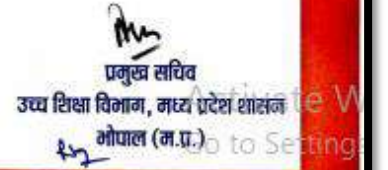 प्रमुख सचिव
उच्च शिक्षा विभाग, मध्य प्रदेश शासन
भोपाल (म.प्र.)
Activate W
Go to Setting